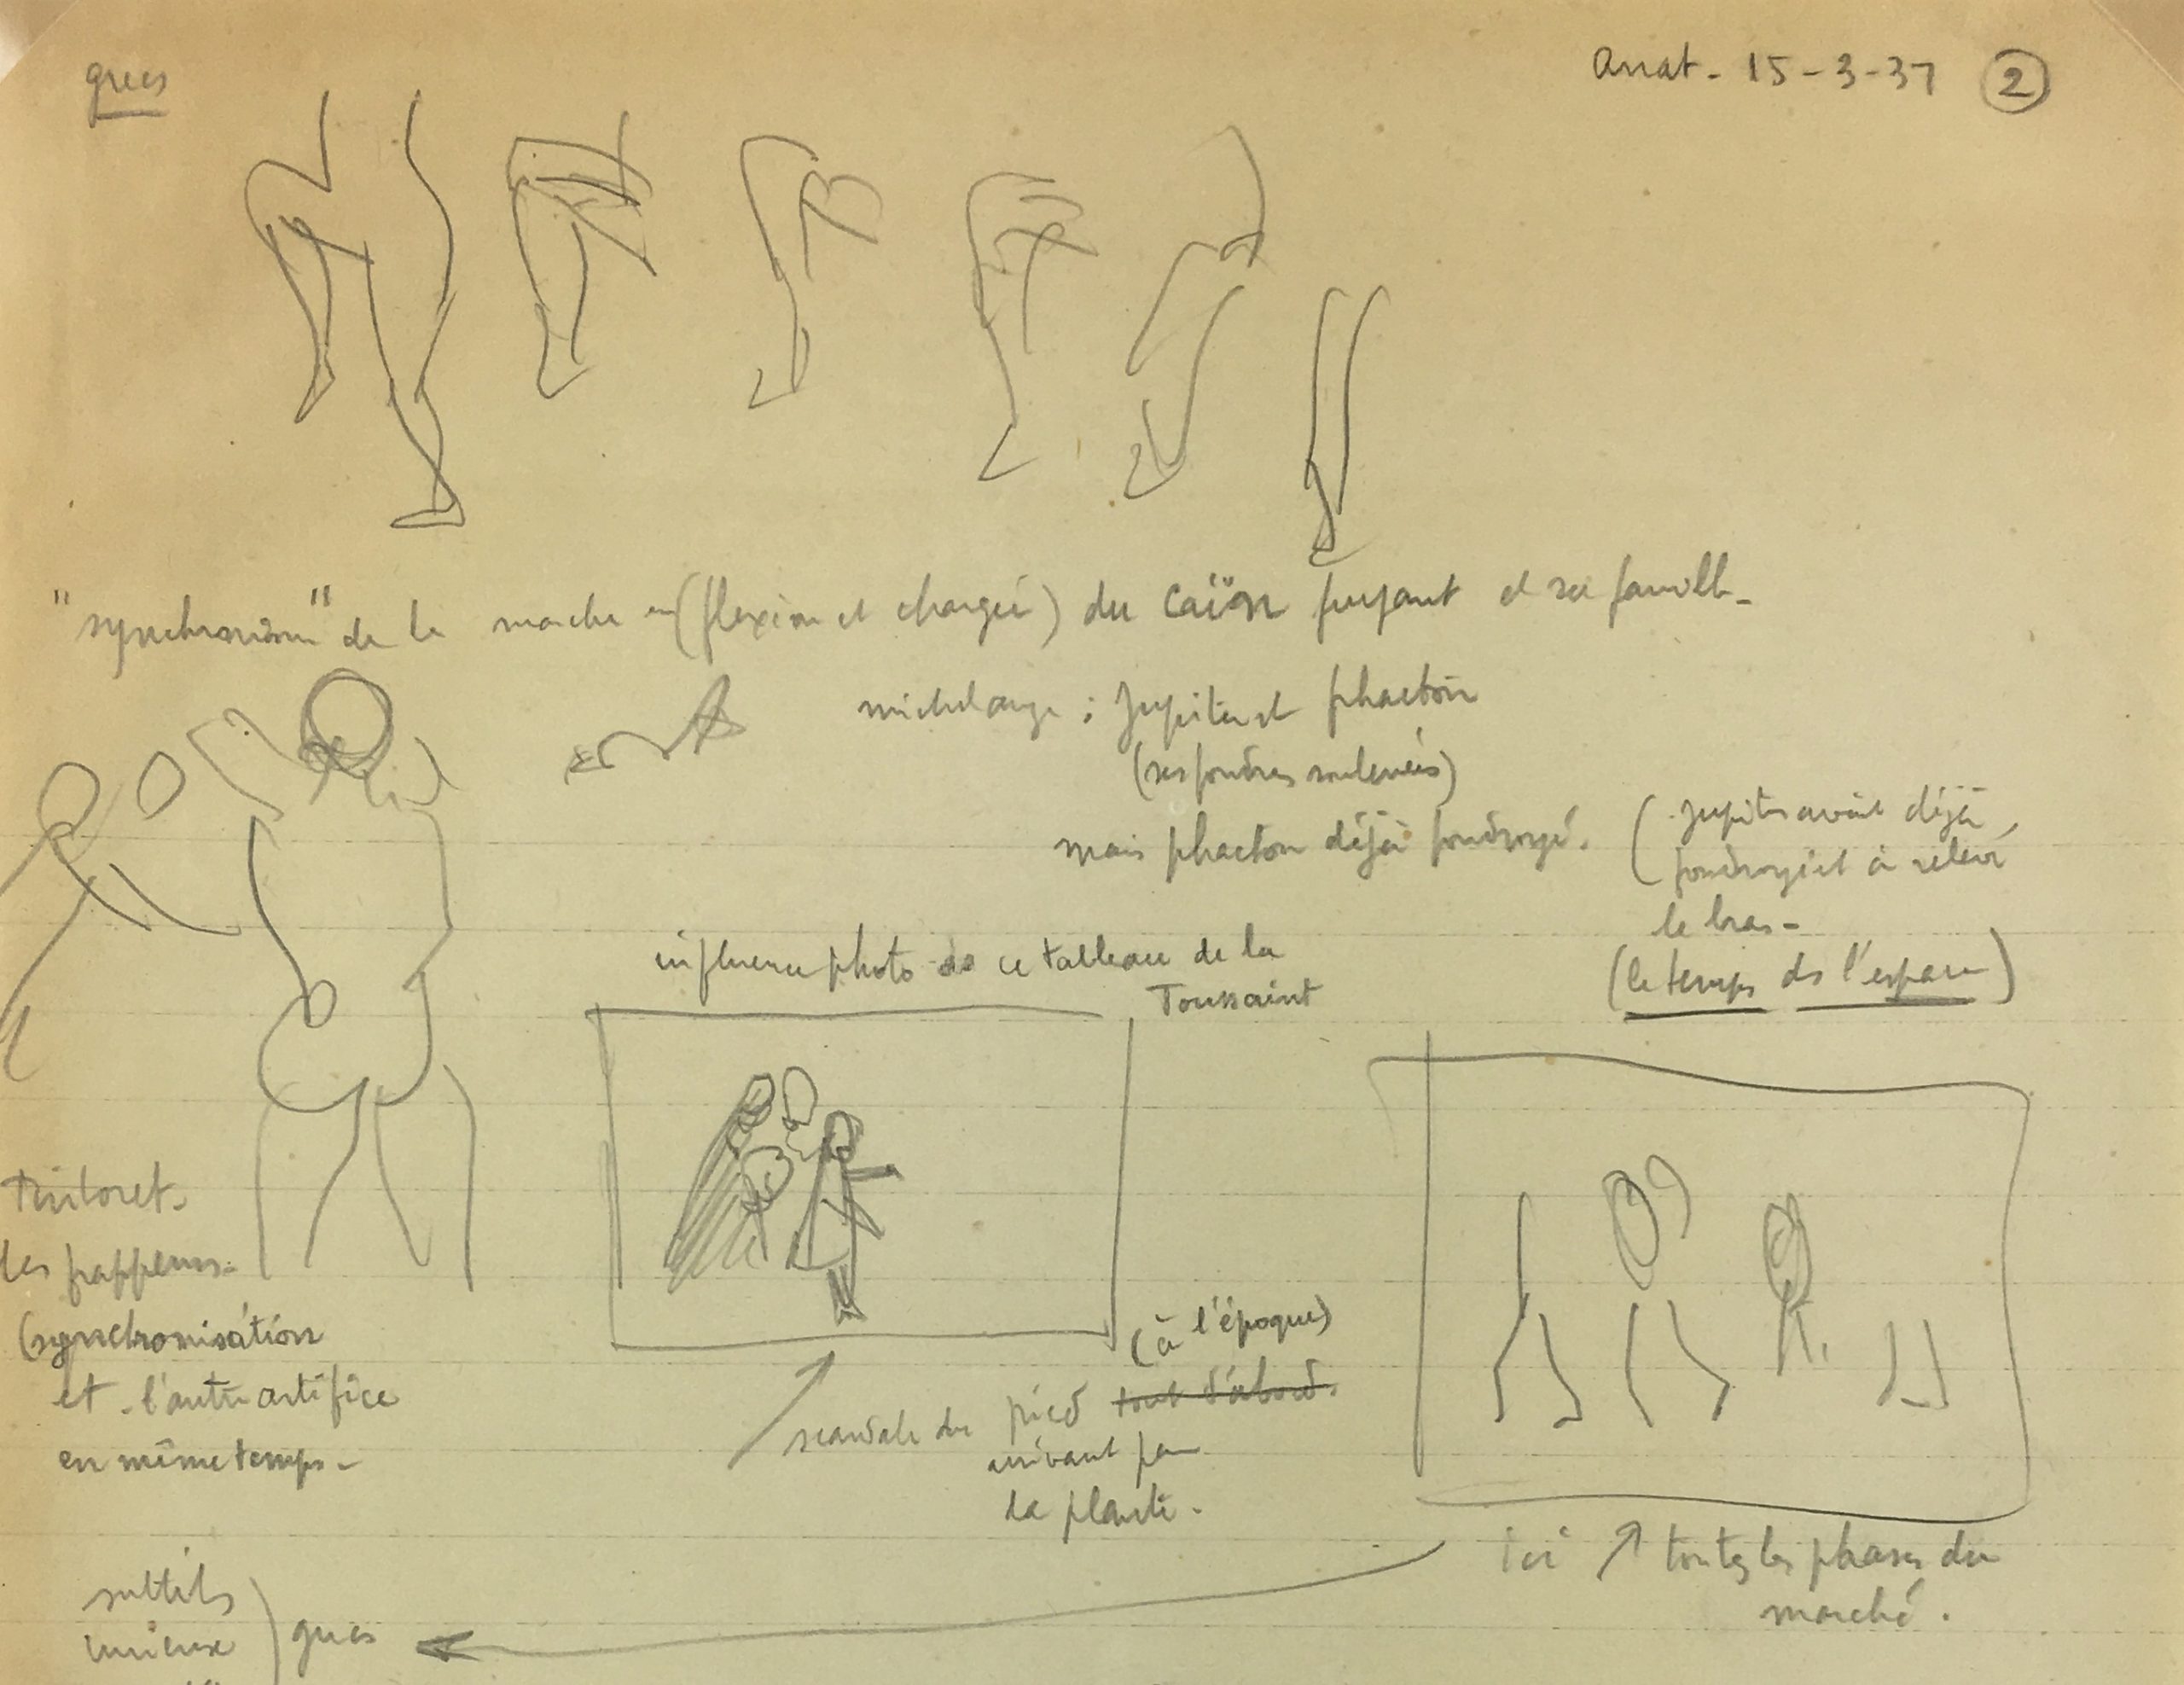 grecs
Anat - 15-3-37 ②
"synchronisme" de la marche en (flexion et chargée) du Caïn fuyant et sa famille -
michelange : Jupiter et phaeton
(ses foudres soulevées)
mais phaeton déjà foudroyé.
(Jupiter avait déjà
foudroyé et à relevé
le bras -
(le temps ds l'espace)
influence photo ds ce tableau de la
Toussaint
Tintoret.
les frappeurs -
(synchronisation
et l'autre artifice
en même temps -
(à l'époque)
scandale du pied tout d'abord.
arrivant par
la plante.
ici ↗ toutes les phases du
marché.
subtils
curieux
grecs